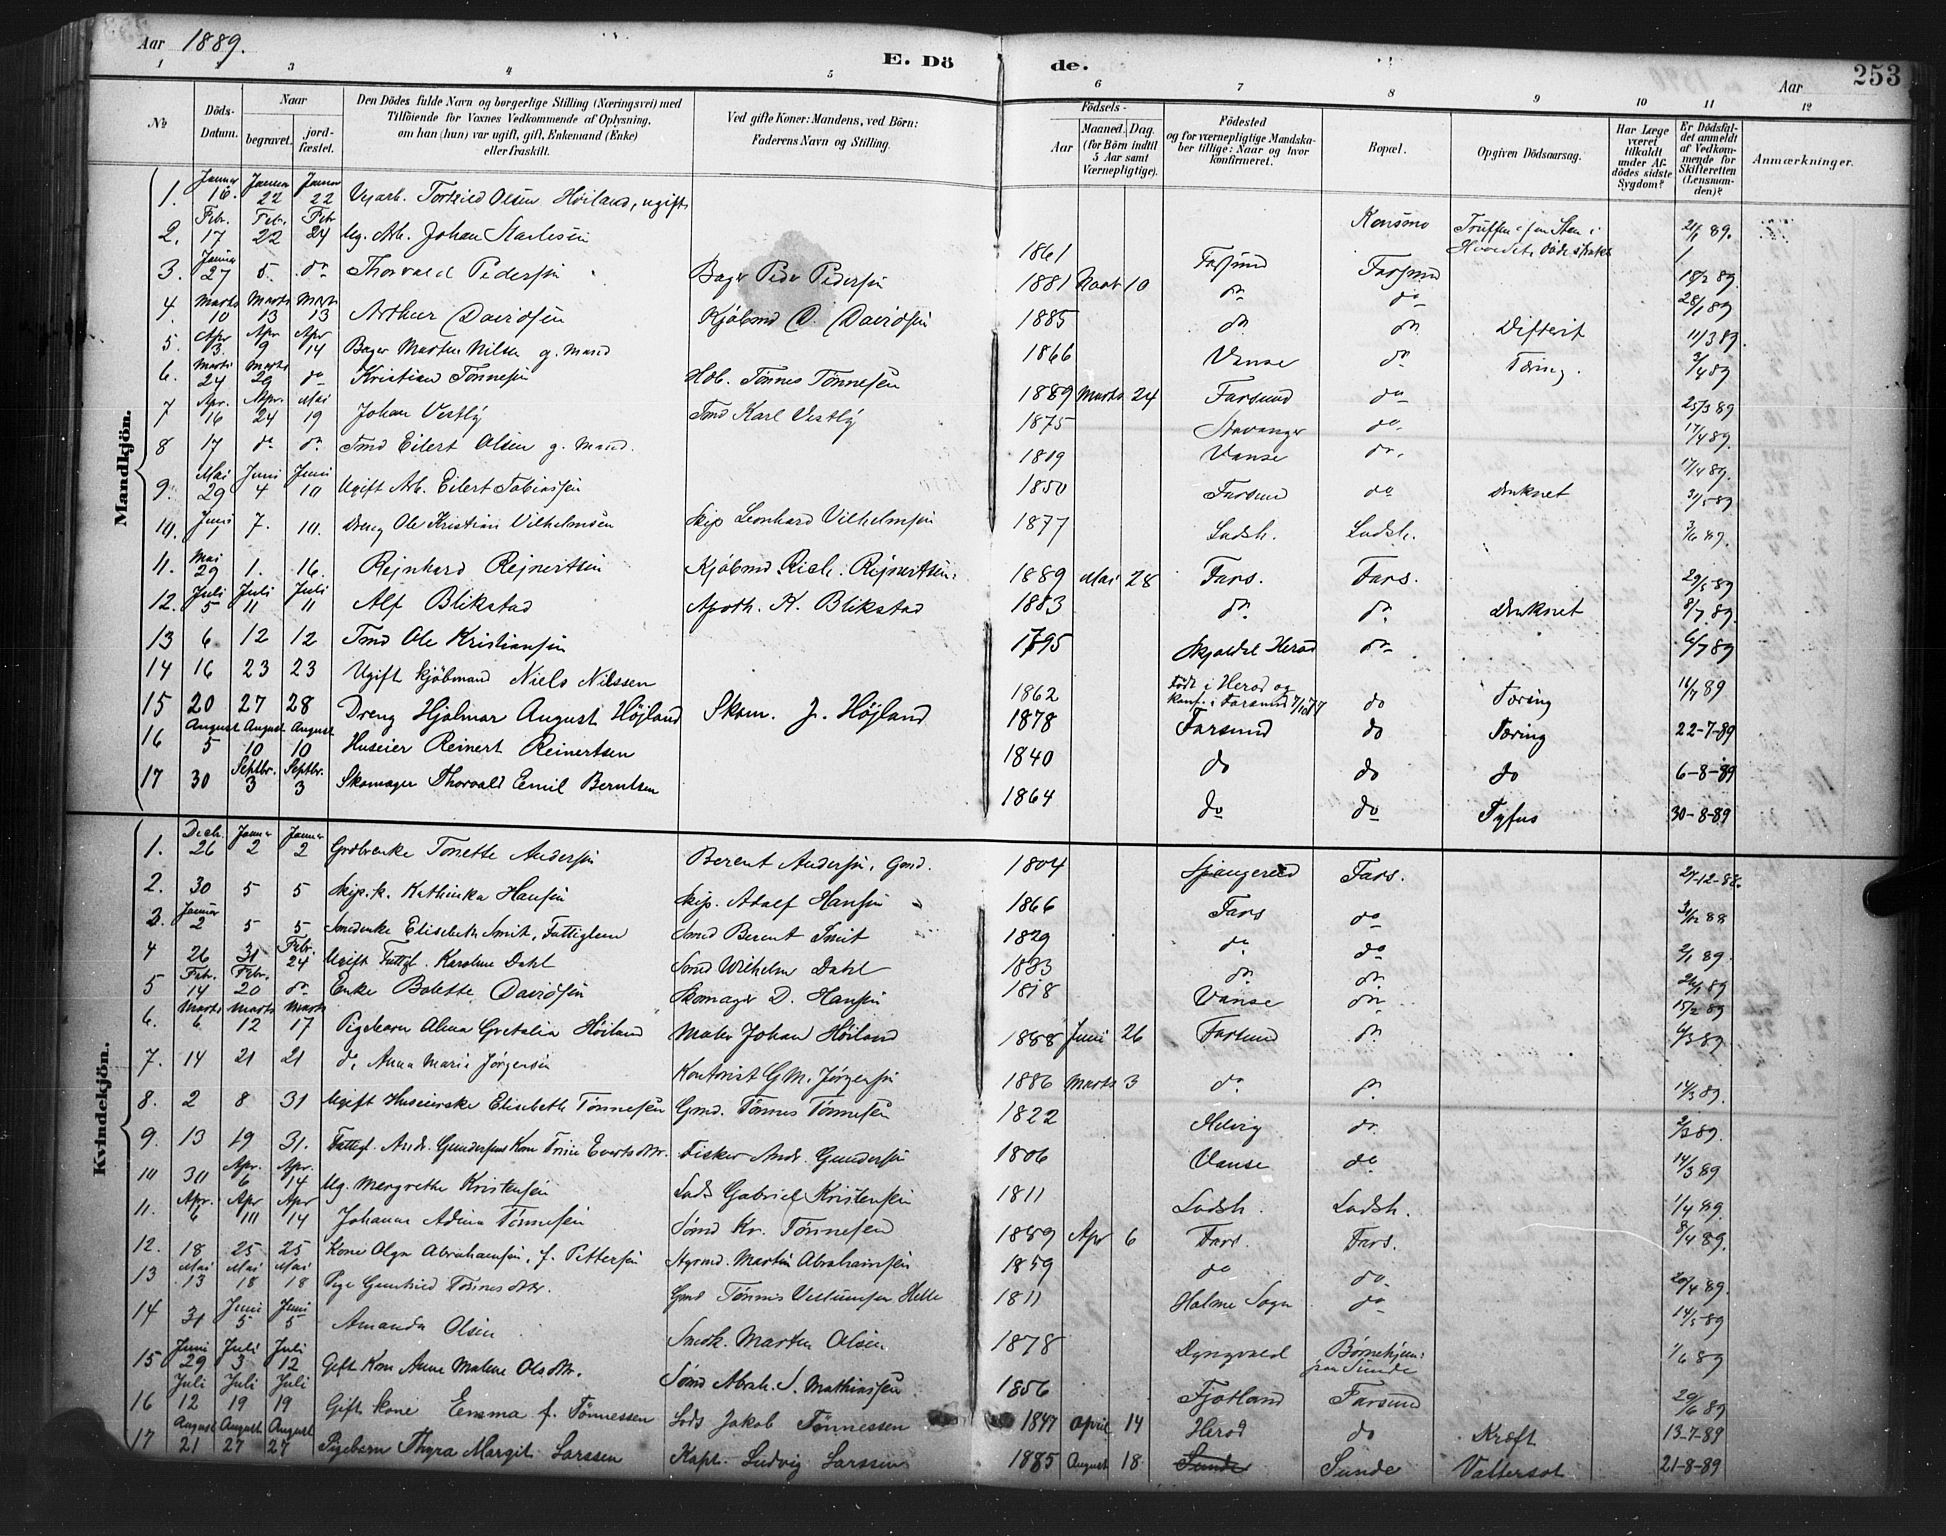 Aar 1889.
E. Dö de.
Aar
253
1 3 4 5 6 7 8 9 10 11 12
№
Döds-Datum.
Naar
begravet.
jordfæstet.
Den Dödes fulde Navn og borgerlige Stilling (Næringsvei) med
Tilföiende for Voxnes Vedkommende af Oplysning,
om han (hun) var ugift, gift, Enkemand (Enke)
eller fraskilt.
Ved gifte Koner: Mandens, ved Börn:
Faderens Navn og Stilling.
Födsels-
Aar
Maaned. Dag.
(for Börn indtil
5 Aar samt
Værnepligtige).
Födested
og for værnepligtige Mandskaber tillige: Naar og hvor
konfirmeret.
Bopæl.
Opgiven Dödsaarsag.
Har Læge
været
tilkaldt
under Afdödes sidste
Sygdom?
Er Dödsfaldet anmeldt
af Vedkommende for
Skifteretten
(Lensmanden)?
Anmærkninger.
Mandkjön.
1. Januar 16. Januar 22 Januar 22 Torkild Olsen Höiland, ugift Konsmo
2. Febr. 17 Febr. 22 Febr 24 Ug. Arb. Johan 1861 Farsund Farsund 18/2 89
3. Januar 27 5. do Thorvald Pedersen Bager Peder Pedersen 1881 10 do do 28/1 89
4. Marts 10 Marts 13 Marts 13 Arthur Davidsen Kjöbmd D. Davidsen 1885 do do Difterit 11/3 89.
5. Apr 3. Apr 9 Apr 14 Bager Morten Nilsen g. Mand 1866 Vanse do Tæring. 3/4 89
6. Marts 24 Marts 29 do Kristian Tönnesen Tönnes Tönnesen 1889 Marts 24 Farsund do 25/3 89
7 Apr. 16 Apr. 24 Mai 19 Johan Vestby Tmd Karl Vestby 1875 Stavanger do. 17/4 89.
8 17 do do Tmd Eilert Olsen g. Mand. 1819 Vanse do. 17/4 89.
9. Mai 29 Juni 4 Juni 10 Ugift Arb. Eilert Tobiassen 1850 Farsund do Druknet 31/5 89
10. Juni 1 7. 10. Dreng Ole Kristian Vilhelmsen Skip Leonhard Vilhelmsen 1877 Ladsh. Ladsh. 3/6 89.
11. Mai 29 1. 16. Rejnhard Rejnertsen Kjöbmd Rich. Rejnertsen. 1889 Mai 28 Fars. Fars. 29/5 89
12. Juli 5 Juli 11 Juli 11 Alf Blikstad Apoth. K. Blikstad 1883 do do Druknet 8/7 89.
13 6 12 12 Tmd Ole Kristiansen 1795 Herod do 6/7 89
14 16 23 23 Ugift Kjöbmand Niels Nilssen 1862 Född i Herod og Konf. i Farsund do Tæring
15 20 27 28 Dreng Hjalmar August Höjland Skom. J. Höjland 1878 Farsund do Tæring 22-7-89
16 August 5 August 10 August 10 Huseier Reinert Reinertsen 1840 do do do 6-8-89
17 30 Septbr. 3 Septbr. 3 Skomager Thorvald Emil Berntsen 1864 do do Tyfus 30-8-89
Kvindekjön.
1. Dech. 26 Januar 2 Januar 2 Tonette Andersen Berent Andersen, Gmd. 1804 Spangereid Fars.
2. 30 5 5 Skip. k. Kathinka Hansen Skip. Adolf Hansen 1866 Fars do
3. Januar 2 5 5 Elisabeth Smit, Fattiglem Smed Berent Smit 1829 do do 2/1 89.
4 26 31 Febr. 24 Ugift Fattgl. Karoline Dahl Wilhelm Dahl 1833 do do
5 Febr. 14 Febr. 20 do Enke Bolette Davidsen Skomager D. Hansen 1818 Vanse do 15/2 89
6. Marts 6 Marts 12 Marts 17 Pigebarn Alma Gretalia Höiland Maler Johan Höiland 1888 Juni 26 Farsund do 6/3 89.
7. 14 21 21 d. Anna Marie Jörgensen Kontorist G.M. Jörgensen 1886 Marts 3 do do 14/3 89.
8. 2 8 31 Ugift Elisabeth Tönnesen Gmd. Tönnes Tönnesen 1822 Helvig do 2/3 89.
9. 13 19 31. Fattgl. Andr. Gundersens Kone Trine Evertsdtr. Fisker Andr. Gundersen 1806 Vanse do 14/3 89
10 30 Apr. 6 Apr. 14 Ug. Margrethe Kristensen Lods Gabriel Kristensen 1811 Ladsh. Ladsh. 1/4 89.
11. Apr. 6 Apr 10 Apr 14 Johanne Adina Tönnesen Sömd Kr. Tönnesen 1889 Apr 6 Fars. Fars. 8/4 89.
12. 18 25 25 Kone Olga Abrahamsen, f. Pettersen Styrmd. Martin Abrahamsen 1859 do do 20/4 89.
13 Mai 13 Mai 18 Mai 18 Pige Gunhild Tönnesdtr. Gmd Tönnes Helle 1811 Holme Sogn do 14/5 89
14 31 Juni 5 Juni 5 Amanda Olsen Morten Olsen 1878 Dyngvold Börnehjem paa Sunde 1/6 89
15 Juni 29 Juli 3 Juli 12 Gift Kone Anne Malene Olsdtr. Sömd Abrah. S. Mathiassen 1856 Fjotland Farsund 29/6 89
16 Juli 12 Juli 19 Juli 19 Gift kone Emma f. Tönnessen Lods Jakob Tönnessen 1847 April 14 Herod do Kræft 13-7-89
17 August 21 August 27 August 27 Pigebarn Thyra Margit Larssen Kapt. Ludvig Larssen 1885 August 18 Sunde Sunde Vattersot 21-8-89